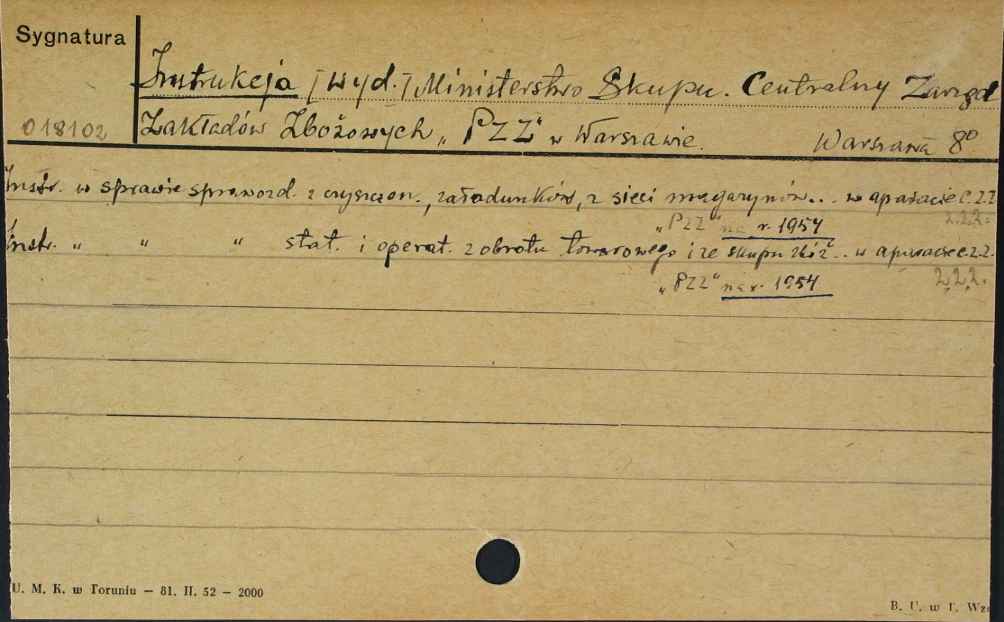 Sygnatura
Instrukcja [wyd.] Ministerstwo Skupu. Centralny Zarząd
018102 Zakładów Zbożowych „PZZ" w Warszawie. Warszawa 8°
Instr. w sprawie sprawozd. z czyszczon., załadunków, z sieci magazynów... w aparacie C.Z.Z.
„PZZ" na r. 1954 Z.Z.Z.
Instr. „ „ „ stat. i operat. z obrotu towarowego i ze skupu zbóż.. w aparacie C.Z.Z.
„PZZ" na r. 1954 Z.Z.Z.
U. M. K. w Toruniu — 81. II. 52 — 2000
B. U. w T. Wzó